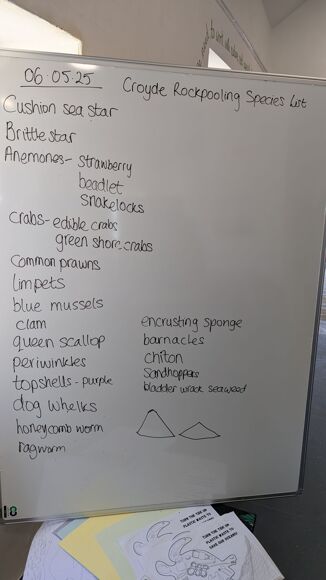 06.05.25 Croyde Rockpooling Species List
Cushion sea star
Brittle star
Anemones - strawberry
beadlet
snakelocks
Crabs - edible crabs
green shore crabs
Common prawns
limpets
blue mussels
clam
queen scallop
periwinkles
topshells - purple
dog whelks
honeycomb worm
ragworm
encrusting sponge
barnacles
chiton
Sandhoppers
bladder wrack seaweed
TURN THE TIDE ON
PLASTIC WASTE TO
TURN THE TIDE ON
PLASTIC WASTE TO
SAVE OUR OCEANS!